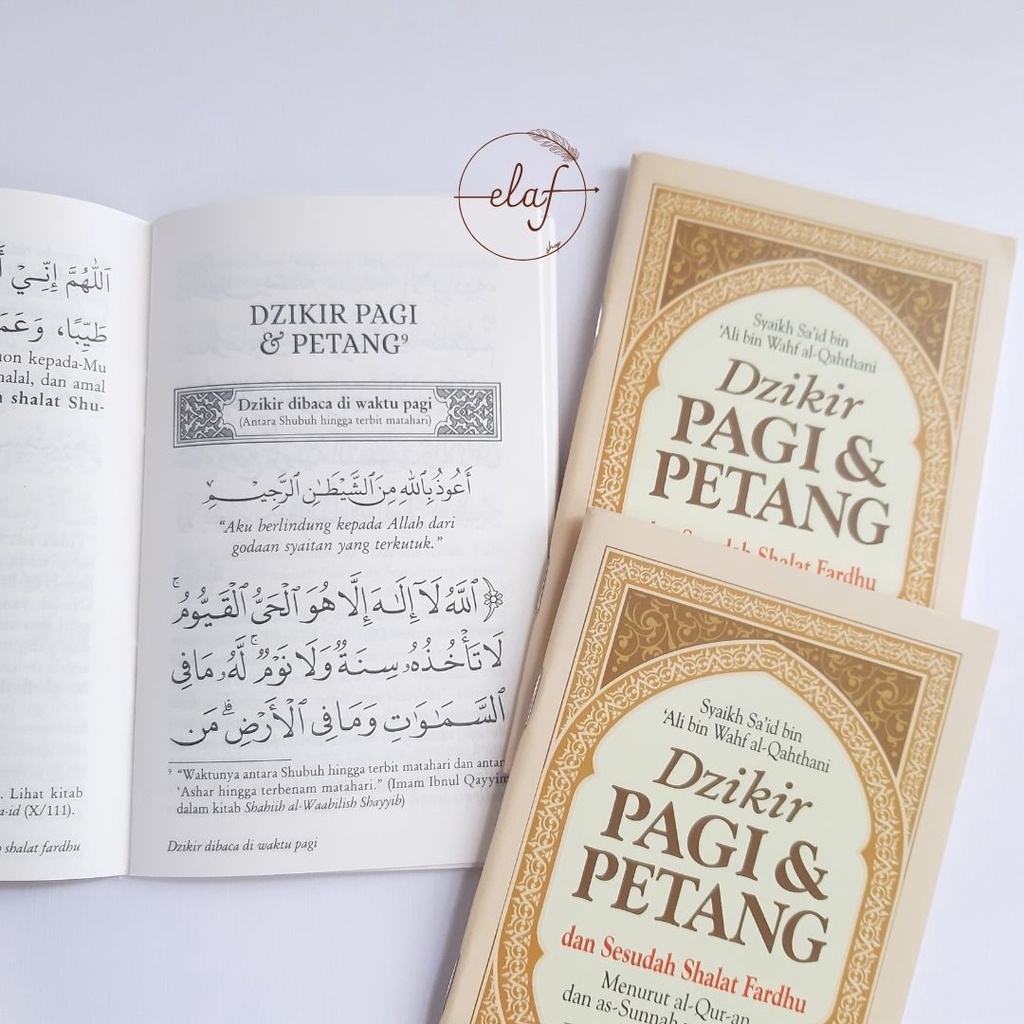 elaf
shop
اَللّٰهُمَّ إِنِّيْ
طَيِّبًا، وَعَمَ
on kepada-Mu
halal, dan amal
shalat Shu-
. Lihat kitab
a-id (X/111).
shalat fardhu
DZIKIR PAGI
& PETANG⁹
Dzikir dibaca di waktu pagi
(Antara Shubuh hingga terbit matahari)
أَعُوْذُ بِاللّٰهِ مِنَ الشَّيْطٰنِ الرَّجِيْمِ
“Aku berlindung kepada Allah dari
godaan syaitan yang terkutuk.”
﴿ ٱللَّهُ لَآ إِلَـٰهَ إِلَّا هُوَ ٱلْحَىُّ ٱلْقَيُّومُ ۚ
لَا تَأْخُذُهُۥ سِنَةٌ وَلَا نَوْمٌ ۚ لَّهُۥ مَا فِى
ٱلسَّمَـٰوَٰتِ وَمَا فِى ٱلْأَرْضِ ۗ مَن
⁹ “Waktunya antara Shubuh hingga terbit matahari dan antar
‘Ashar hingga terbenam matahari.” (Imam Ibnul Qayyim
dalam kitab Shahiih al-Waabilish Shayyib)
Dzikir dibaca di waktu pagi
Syaikh Sa’id bin
‘Ali bin Wahf al-Qahthani
Dzikir
PAGI &
PETANG
Shalat Fardhu
Syaikh Sa’id bin
‘Ali bin Wahf al-Qahthani
Dzikir
PAGI &
PETANG
dan Sesudah Shalat Fardhu
Menurut al-Qur-an
dan as-Sunnah